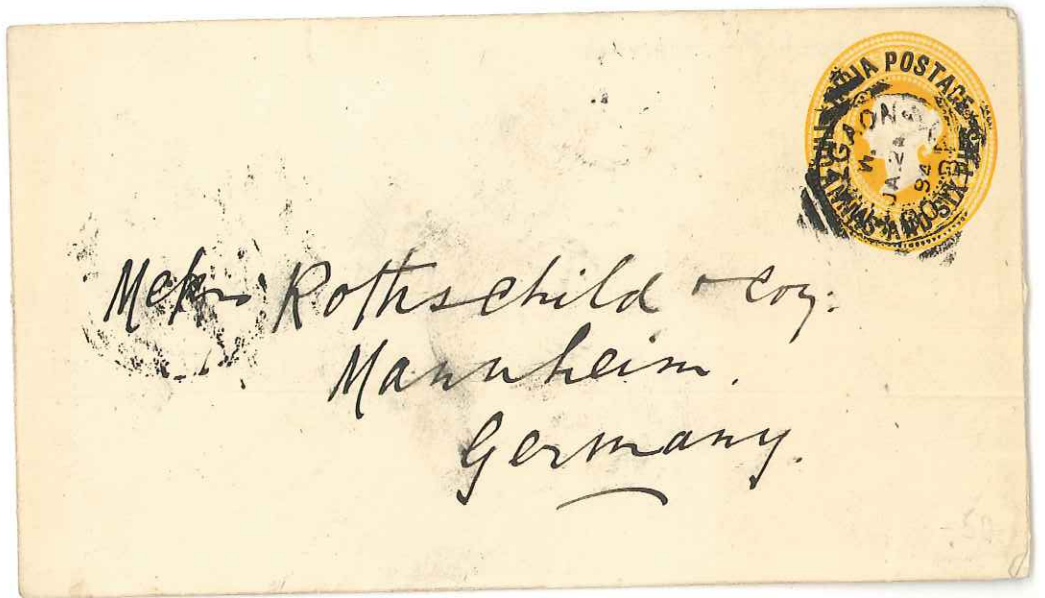 INDIA POSTAGE
TWO ANNAS AND SIX PIES
GAON
JA 24
94
Rothschild & Coy:
Mannheim.
Germany.